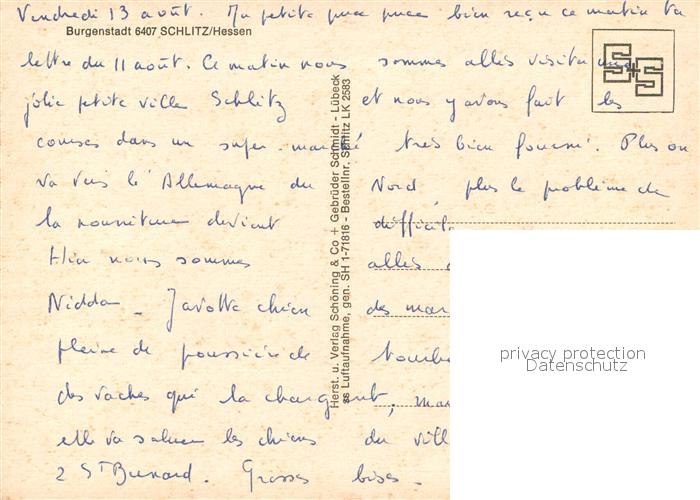 Vendredi 13 août. Ma petite puce puce bien reçu ce matin ta
Burgenstadt 6407 SCHLITZ/Hessen
lettre du 11 août. Ce matin nous sommes allés visiter une
jolie petite ville Schlitz et nous y avons fait les
courses dans un super-marché très bien fourni. Plus on
va vers l'Allemagne du Nord, plus le problème de
la nourriture devient difficile
Hier nous sommes allés
Nidda - Javotte chien des mar
pleine de poussière de tombe
des vaches qui la chargent, mai
elle va saluer les chiens du vill
2 St Bernard. Grosses bises.
Herst. u. Verlag Schöning & Co + Gebrüder Schmidt - Lübeck
ss Luftaufnahme, gen. SH 1-71816 - Bestellnr. Schlitz LK 2583
S+S
privacy protection
Datenschutz